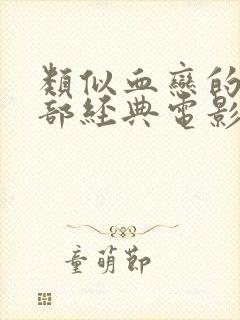 類似血戀的
部經典電影
童萌節